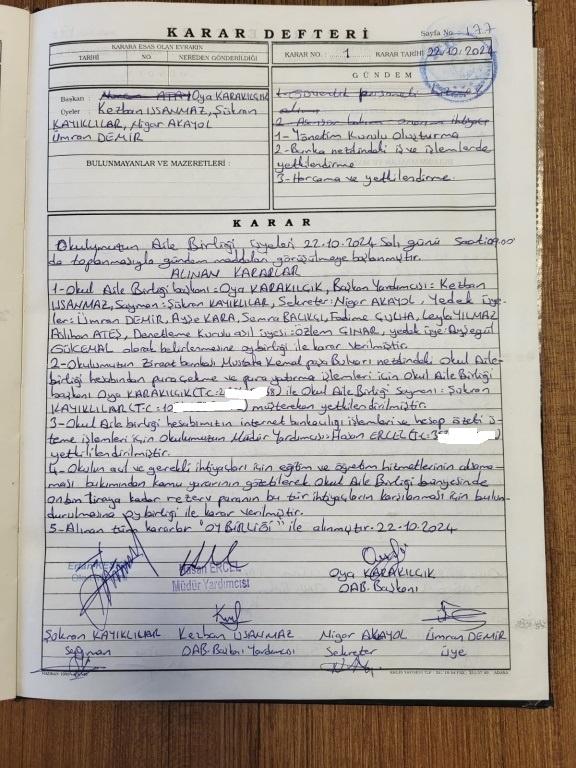 KARAR DEFTERİ
Sayfa No 177
KARARA ESAS OLAN EVRAKIN
TARİHİ NO. NEREDEN GÖNDERİLDİĞİ
KARAR NO. : 1 KARAR TARİHİ 22.10.2024
GÜNDEM
Başkan : Oya KARAKILÇIK
Üyeler : Kezban USANMAZ, Şükran
KAYIKLILAR, Nigar AKAYOL
Ümran DEMİR
BULUNMAYANLAR VE MAZERETLERİ :
1- Güvenlik personeli
2-
1- Yönetim Kurulu Oluşturma
2- Banka nezdindeki iş ve işlemlerde
yetkilendirme
3- Harcama ve yetkilendirme.
KARAR
Okulumuzun Aile Birliği üyeleri 22.10.2024 Salı günü Saat:09.00'
da toplanmasıyla gündem maddeleri görüşülmeye başlanmıştır.
ALINAN KARARLAR
1- Okul Aile Birliği başkanı: Oya KARAKILÇIK, Başkan Yardımcısı: Kezban
USANMAZ, Sayman: Şükran KAYIKLILAR, Sekreter: Nigar AKAYOL, Yedek üye-
ler: Ümran DEMİR, Ayşe KARA, Semra BALIKÇI, Fadime GÜLHA, Leyla YILMAZ
Aslıhan ATEŞ, Denetleme Kurulu asıl üyesi: Özlem ÇINAR, yedek üye: Ayşegül
GÜLCEMAL olarak belirlenmesine oybirliği ile karar verilmiştir.
2- Okulumuzun Ziraat bankası Mustafa Kemal paşa Bulvarı nezdindeki Okul Aile-
birliği hesabından para çekme ve para yatırma işlemleri için Okul Aile Birliği
başkanı Oya KARAKILÇIK (TC:2 58) ile Okul Aile Birliği Saymanı: Şükran
KAYIKLILAR (TC: 12 ) müştereken yetkilendirilmiştir.
3- Okul Aile birliği hesabımızın internet bankacılığı işlemleri ve hesap özeti is-
teme işlemleri için Okulumuzun Müdür Yardımcısı: Hasan ERCEL (TC:3 )
yetkilendirilmiştir.
4- Okulun acil ve gerekli ihtiyaçları için eğitim ve öğretim hizmetlerinin aksama-
ması bakımından kamu yararının gözetilerek Okul Aile Birliği bünyesinde
onbin liraya kadar rezerv paranın bu tür ihtiyaçların karşılanması için bulun-
durulmasına oy birliği ile karar verilmiştir.
5- Alınan tüm kararlar "OY BİRLİĞİ" ile alınmıştır. 22.10.2024
Hasan ERCEL
Müdür Yardımcısı
Oya KARAKILÇIK
OAB. Başkanı
Şükran KAYIKLILAR Kezban USANMAZ Nigar AKAYOL Ümran DEMİR
Sayman OAB. Başkan Yardımcısı Sekreter Üye